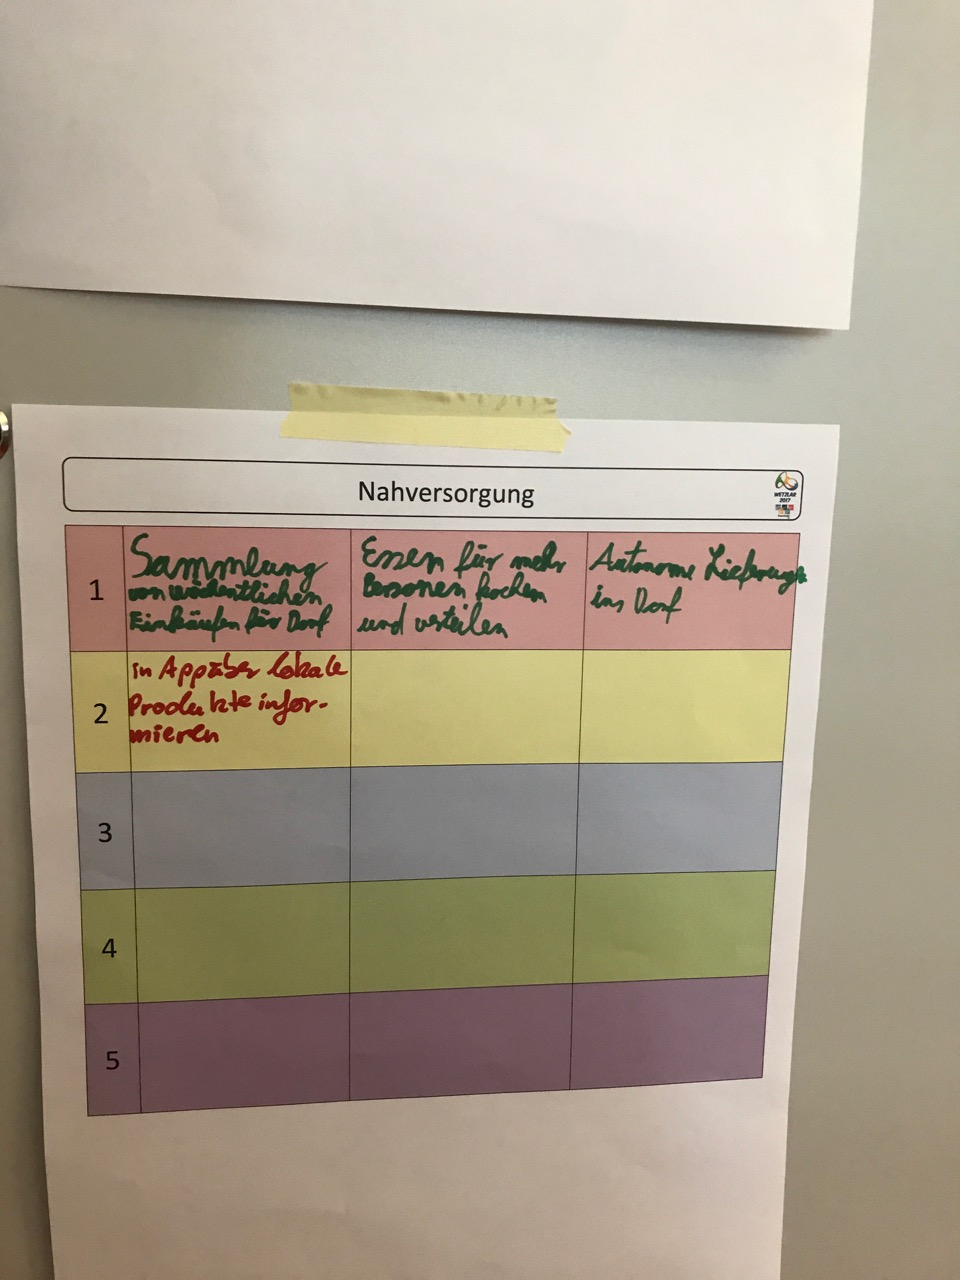 Nahversorgung
WETZLAR
2017
1
Sammlung
von wöchentlichen
Einkäufen für Dorf
Essen für mehr
Personen kochen
und verteilen
Autonome Lieferung
ins Dorf
2
in App über lokale
Produkte infor-
mieren
3
4
5